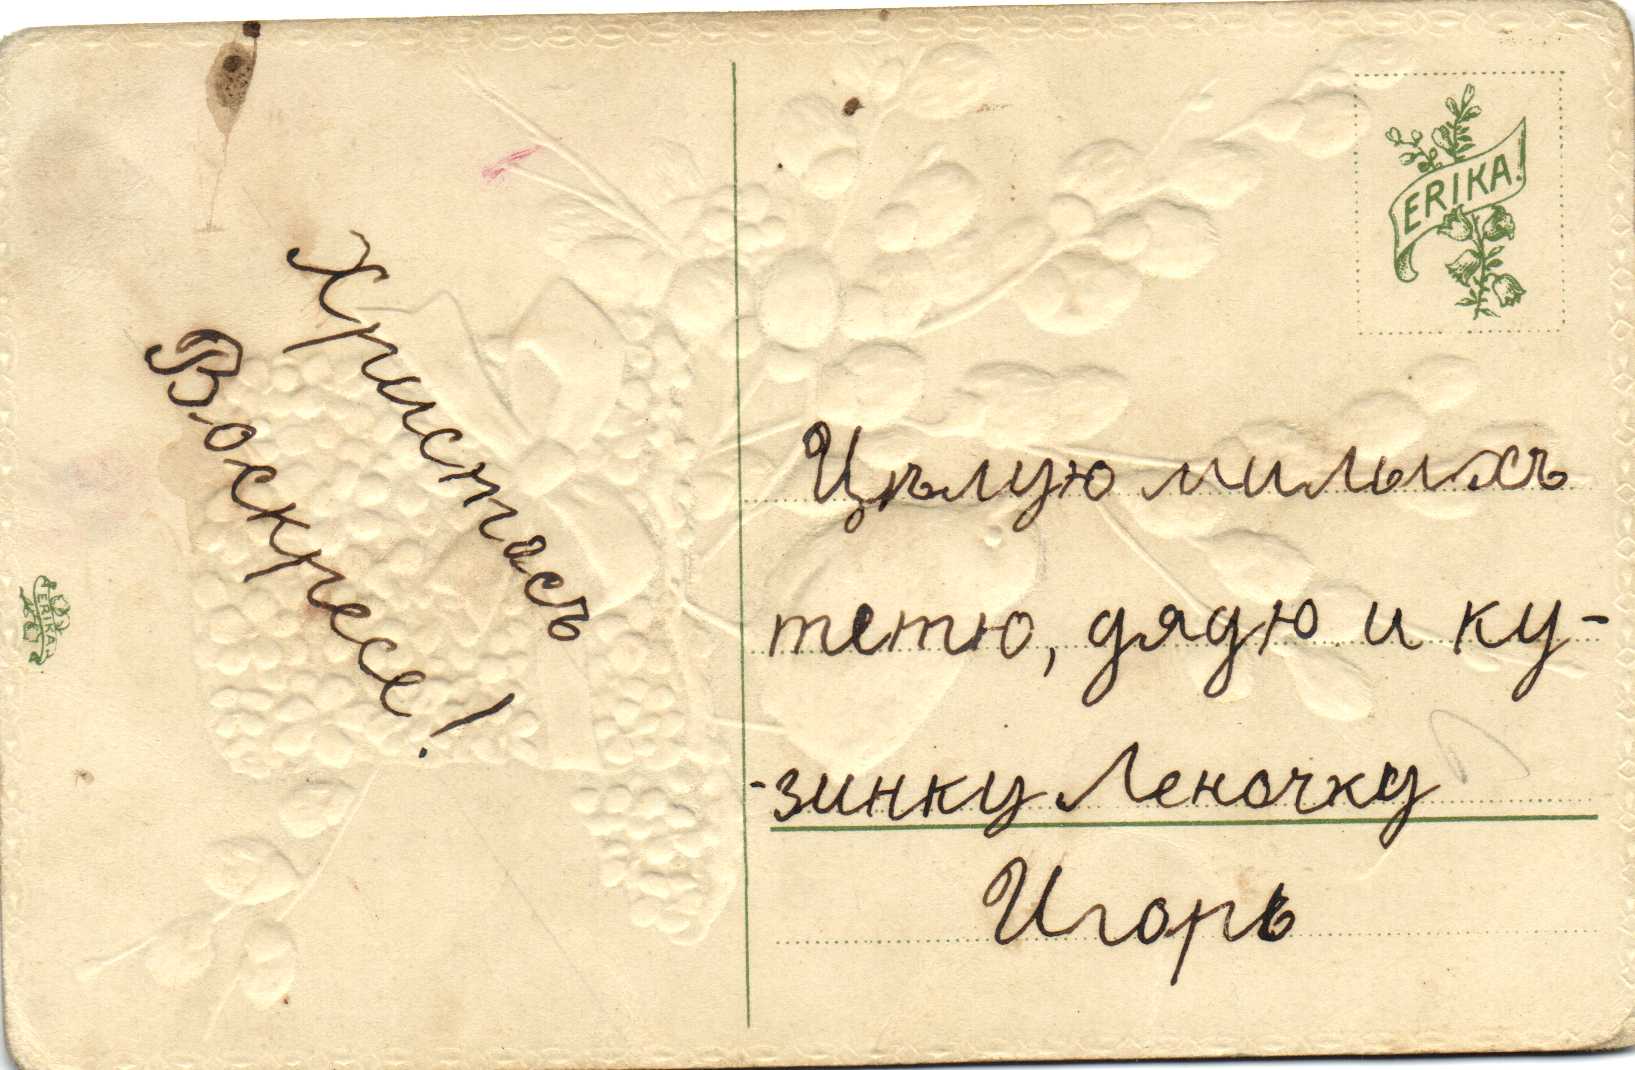 Христосъ
Воскресе!
ERIKA!
ERIKA
Цѣлую милыхъ
тетю, дядю и ку-
-зинку Леночку
Игорь